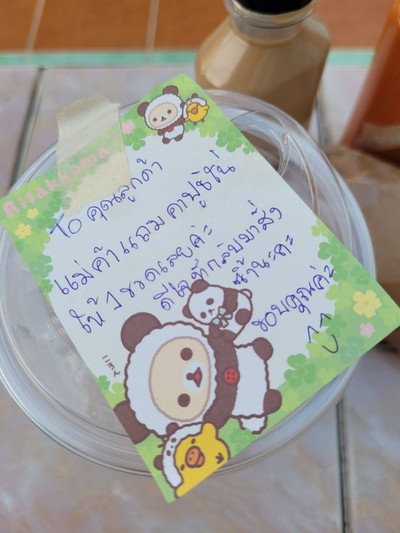 Rilakkuma
To คุณลูกค้า
แม่ค้าแถม คาปูชิโน่
ให้ 1 ขวดเลยค่ะ
ดีใจที่กลับมาสั่ง
น้ำนะคะ
ขอบคุณค่ะ
แถม